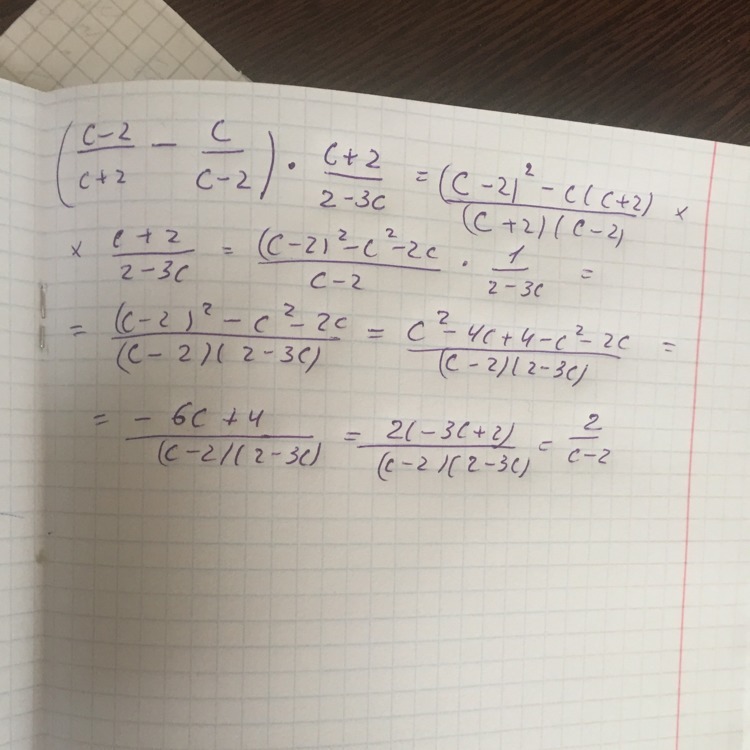 ((c-2)/(c+2) - c/(c-2)) · (c+2)/(2-3c) = ((c-2)² - c(c+2))/((c+2)(c-2)) ×
× (c+2)/(2-3c) = ((c-2)² - c² - 2c)/(c-2) · 1/(2-3c) =
= ((c-2)² - c² - 2c)/((c-2)(2-3c)) = (c² - 4c + 4 - c² - 2c)/((c-2)(2-3c)) =
= (-6c + 4)/((c-2)(2-3c)) = 2(-3c+2)/((c-2)(2-3c)) = 2/(c-2)